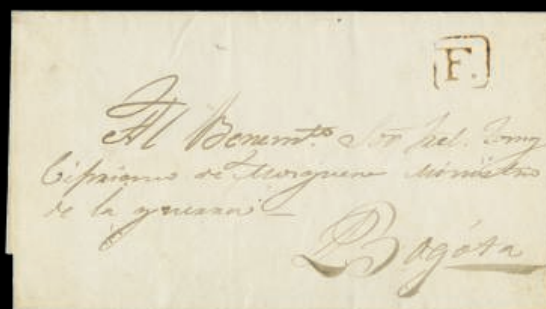 F.
Al Benemto. Sor
Cipriano de Mosquera Ministro
de la guerra
Bogóta